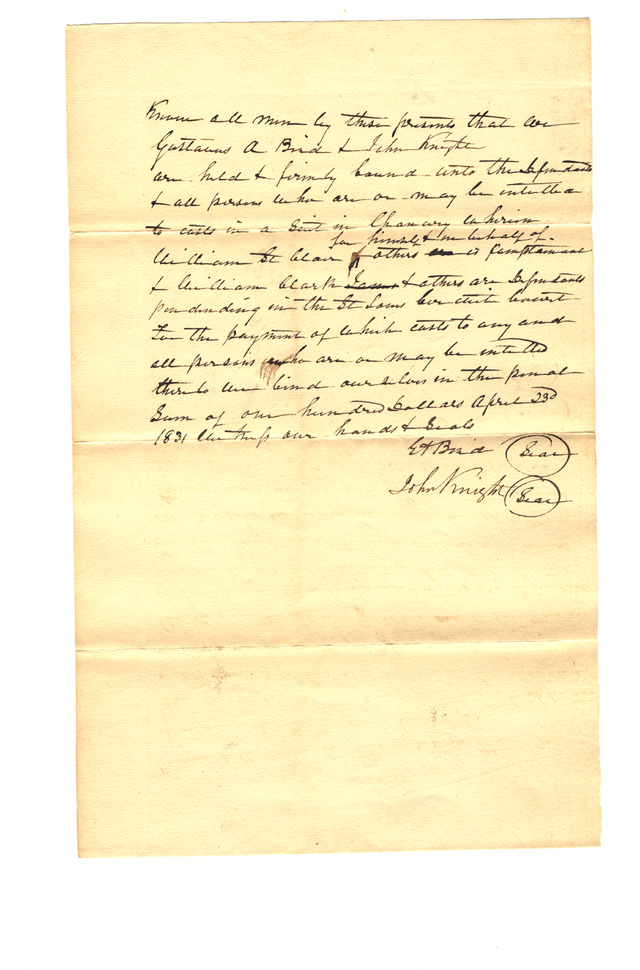 Know all men by these presents that we
Gustavus A Bird & John Knight
are held & firmly bound unto the Defendants
& all persons who are or may be intitled
to costs in a Suit in Chancery wherein
for himself & on behalf of
William St Clair & others is Complainant
& William Clark & others are Defendants
pendending in the St Louis Circuit Court
For the payment of which costs to any and
all persons who are or may be intitled
thereto we bind ourselves in the penal
Sum of one hundred Dollars April 23d
1831 Witness our hands & Seals
GA Bird Seal
John Knight Seal